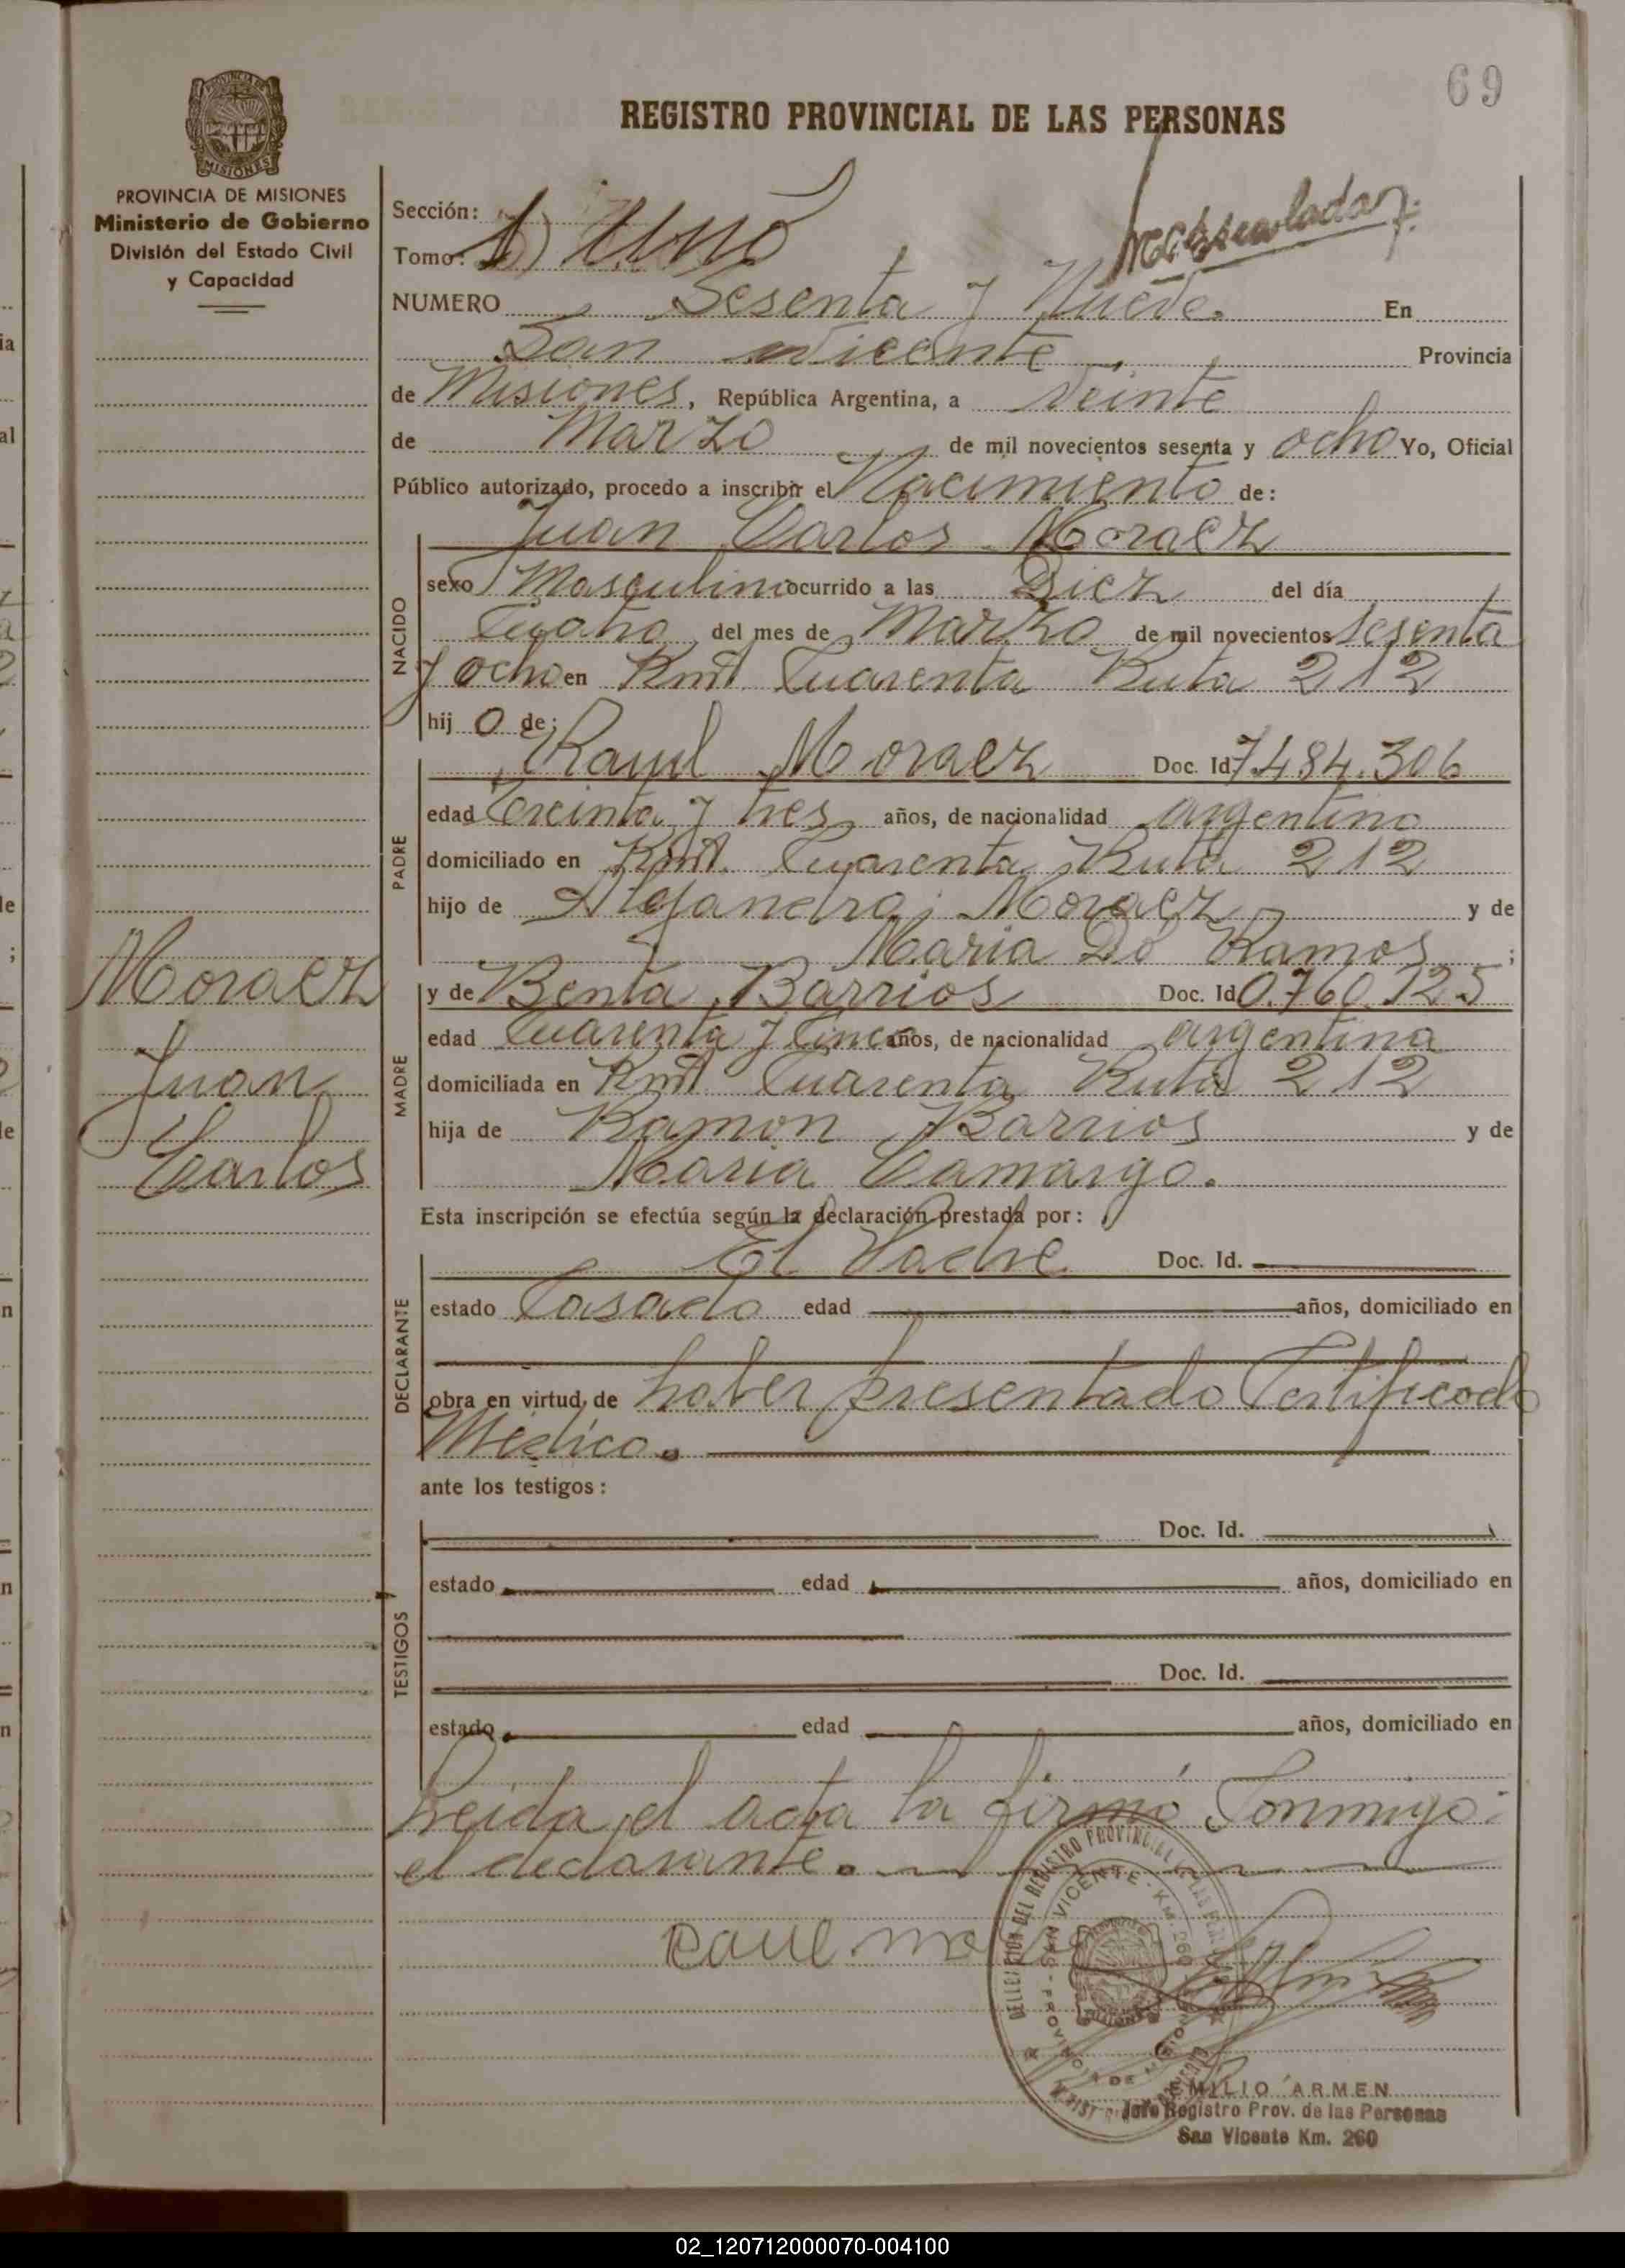 69
REGISTRO PROVINCIAL DE LAS PERSONAS
PROVINCIA DE
MISIONES
PROVINCIA DE MISIONES
Ministerio de Gobierno
División del Estado Civil
y Capacidad
Sección:
Tomo: 1) Uno
NUMERO Sesenta y Nueve. En
San Vicente Provincia
de Misiones, República Argentina, a Veinte
de Marzo de mil novecientos sesenta y ocho Yo, Oficial
Público autorizado, procedo a inscribir el Nacimiento de:
Juan Carlos Moraez
NACIDO
sexo Masculino ocurrido a las Diez del día
Cuatro del mes de Marzo de mil novecientos Sesenta
y ocho en Kmt. Cuarenta Ruta 212
hijo de:
PADRE
Raul Moraez Doc. Id 7.484.306
edad Treinta y tres años, de nacionalidad argentino
domiciliado en Kmt. Cuarenta Ruta 212
hijo de Moraez y de
Maria Do Ramos ;
Moraez
Juan
Carlos
MADRE
y de Benta Barrios Doc. Id 0.760.125
edad Cuarenta y Cinco años, de nacionalidad argentina
domiciliada en Kmt. Cuarenta Ruta 212
hija de Ramon Barrios y de
Maria Camargo.
Esta inscripción se efectúa según la declaración prestada por:
DECLARANTE
El Padre Doc. Id.
estado Casado edad años, domiciliado en
obra en virtud de haber presentado Certificado
Médico.
ante los testigos:
TESTIGOS
Doc. Id.
estado edad años, domiciliado en
Doc. Id.
estado edad años, domiciliado en
Leida el acta la firmó Conmigo:
el declarante.
Raul
SAN VICENTE - KM. 260
EMILIO ARMEN
Jefe Registro Prov. de las Personas
San Vicente Km. 260
02_120712000070-004100